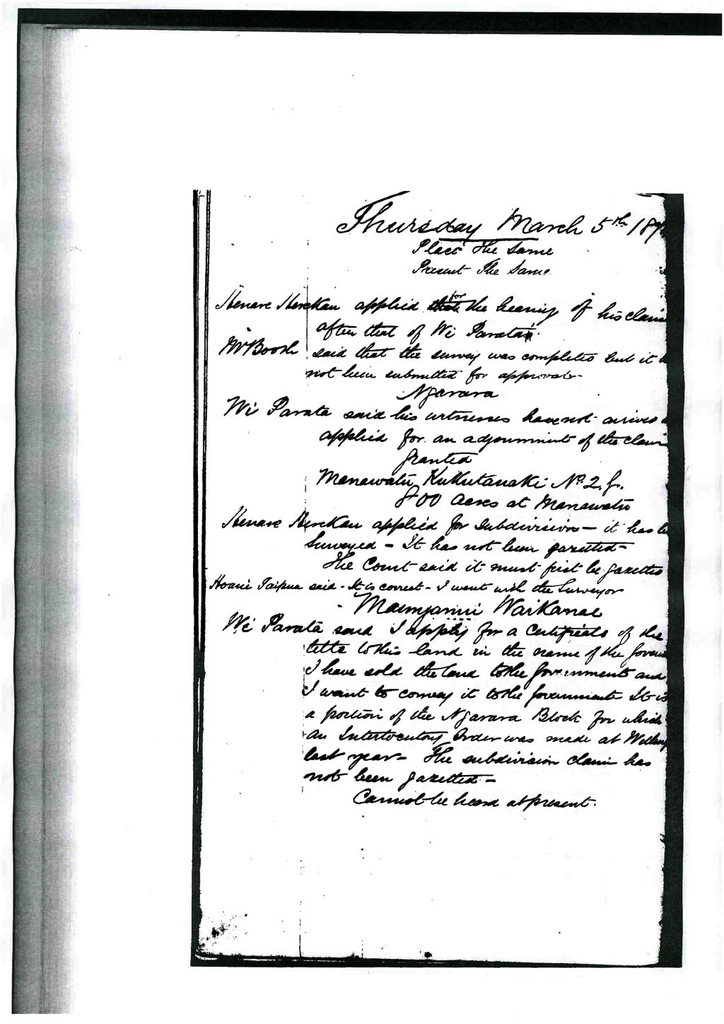 Thursday March 5th 187
Place The Same
Present The Same
Henare Herekau applied for the hearing of his claim
after that of Wi Parata
Mr Booth said that the survey was completed but it
not been submitted for approval-
Ngarara
Wi Parata said his witnesses have not arrived
applied for an adjournment of the claim
Granted
Manawatu Kukutauaki No. 2 f.
800 acres at Manawatu
Henare Herekau applied for subdivision - it has
surveyed - It has not been gazetted -
The Court said it must first be gazetted
Hoani Taipua said - It is correct - I went with the Surveyor
Waikanae
Wi Parata said I apply for a certificate of the
title to this land in the name of the Govern
I have sold the land to the Government and
I want to convey it to the Government It is
a portion of the Ngarara Block for which
an Interlocutory Order was made at Welling
last year - The subdivision claim has
not been gazetted -
Cannot be heard at present.